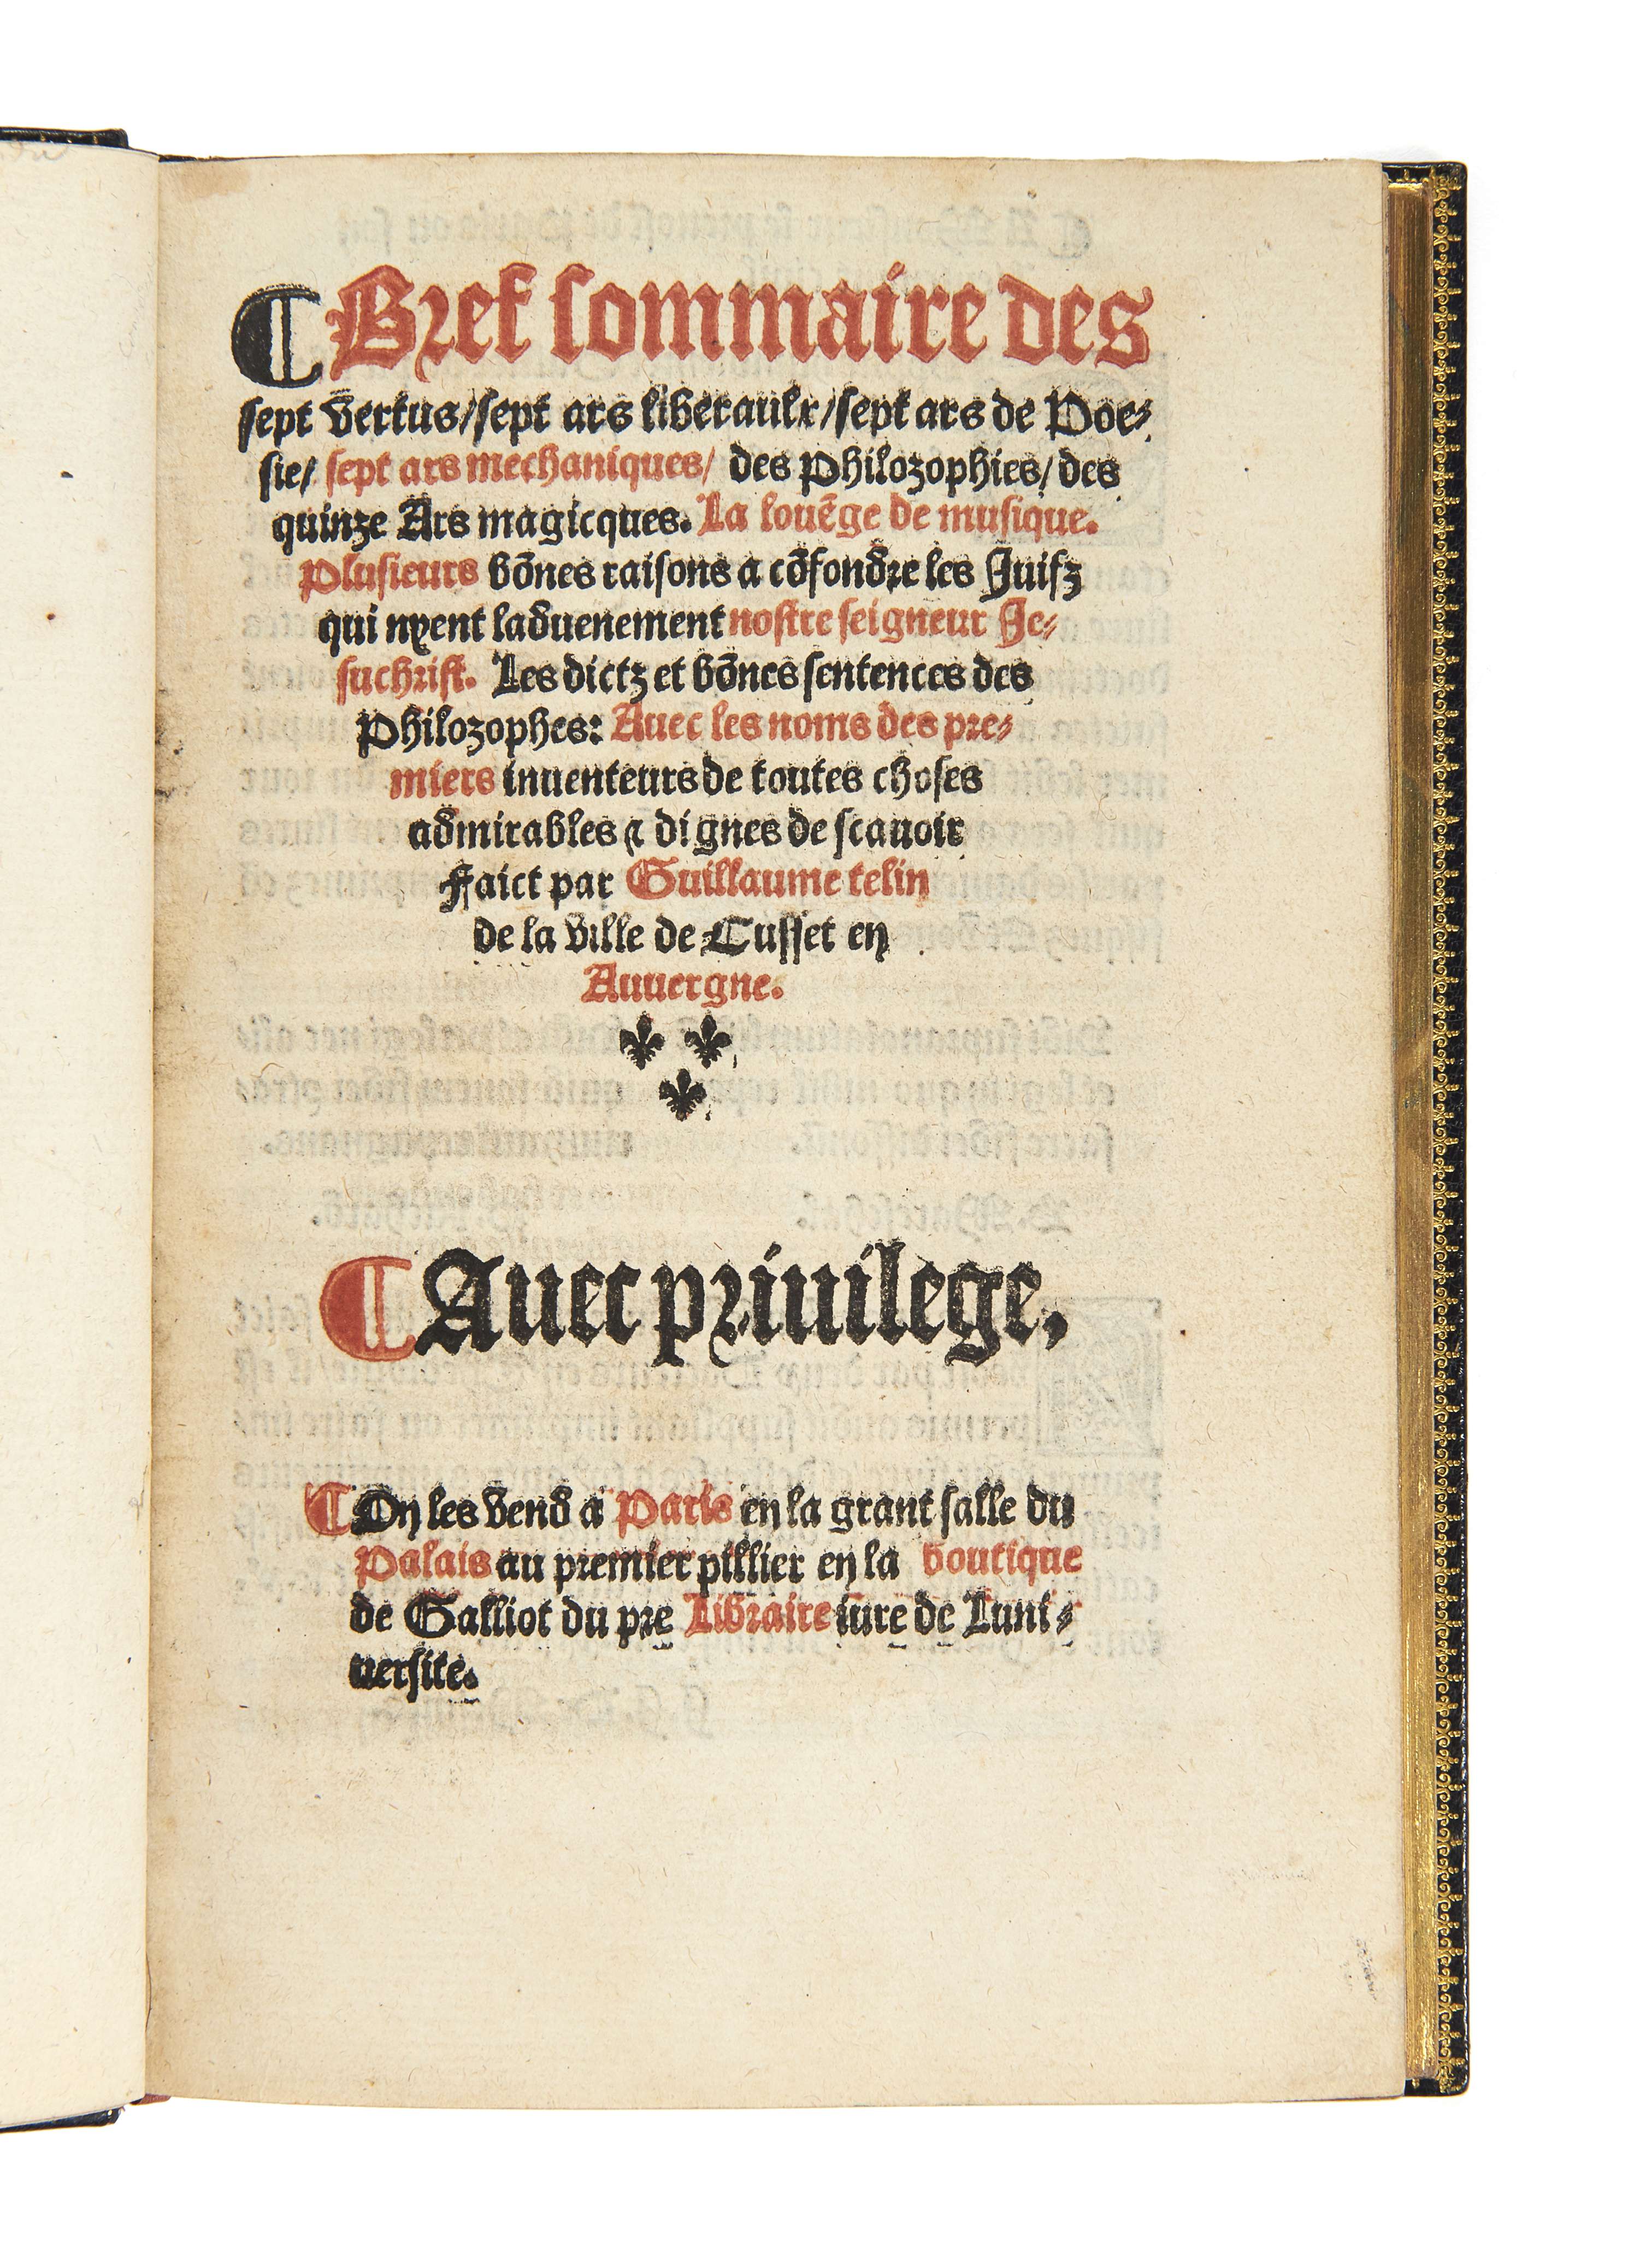 ¶ Bref sommaire des
sept vertus/ sept ars liberaulx/ sept ars de Poe⸗
sie/ sept ars mechaniques/ des Philozophies/ des
quinze Ars magicques. La louēge de musique.
Plusieurs bōnes raisons a cōfondre les Juifz
qui nyent laduenement nostre seigneur Je⸗
suchrist. Les dictz et bōnes sentences des
Philozophes: Auec les noms des pre⸗
miers inuenteurs de toutes choses
admirables ⁊ dignes de scauoir
Faict par Guillaume telin
de la ville de Cusset en
Auuergne.
¶ Auec priuilege,
¶ On les vend a Paris en la grant salle du
Palais au premier pillier en la boutique
de Galliot du pre Libraire iure de Luni⸗
uersite.